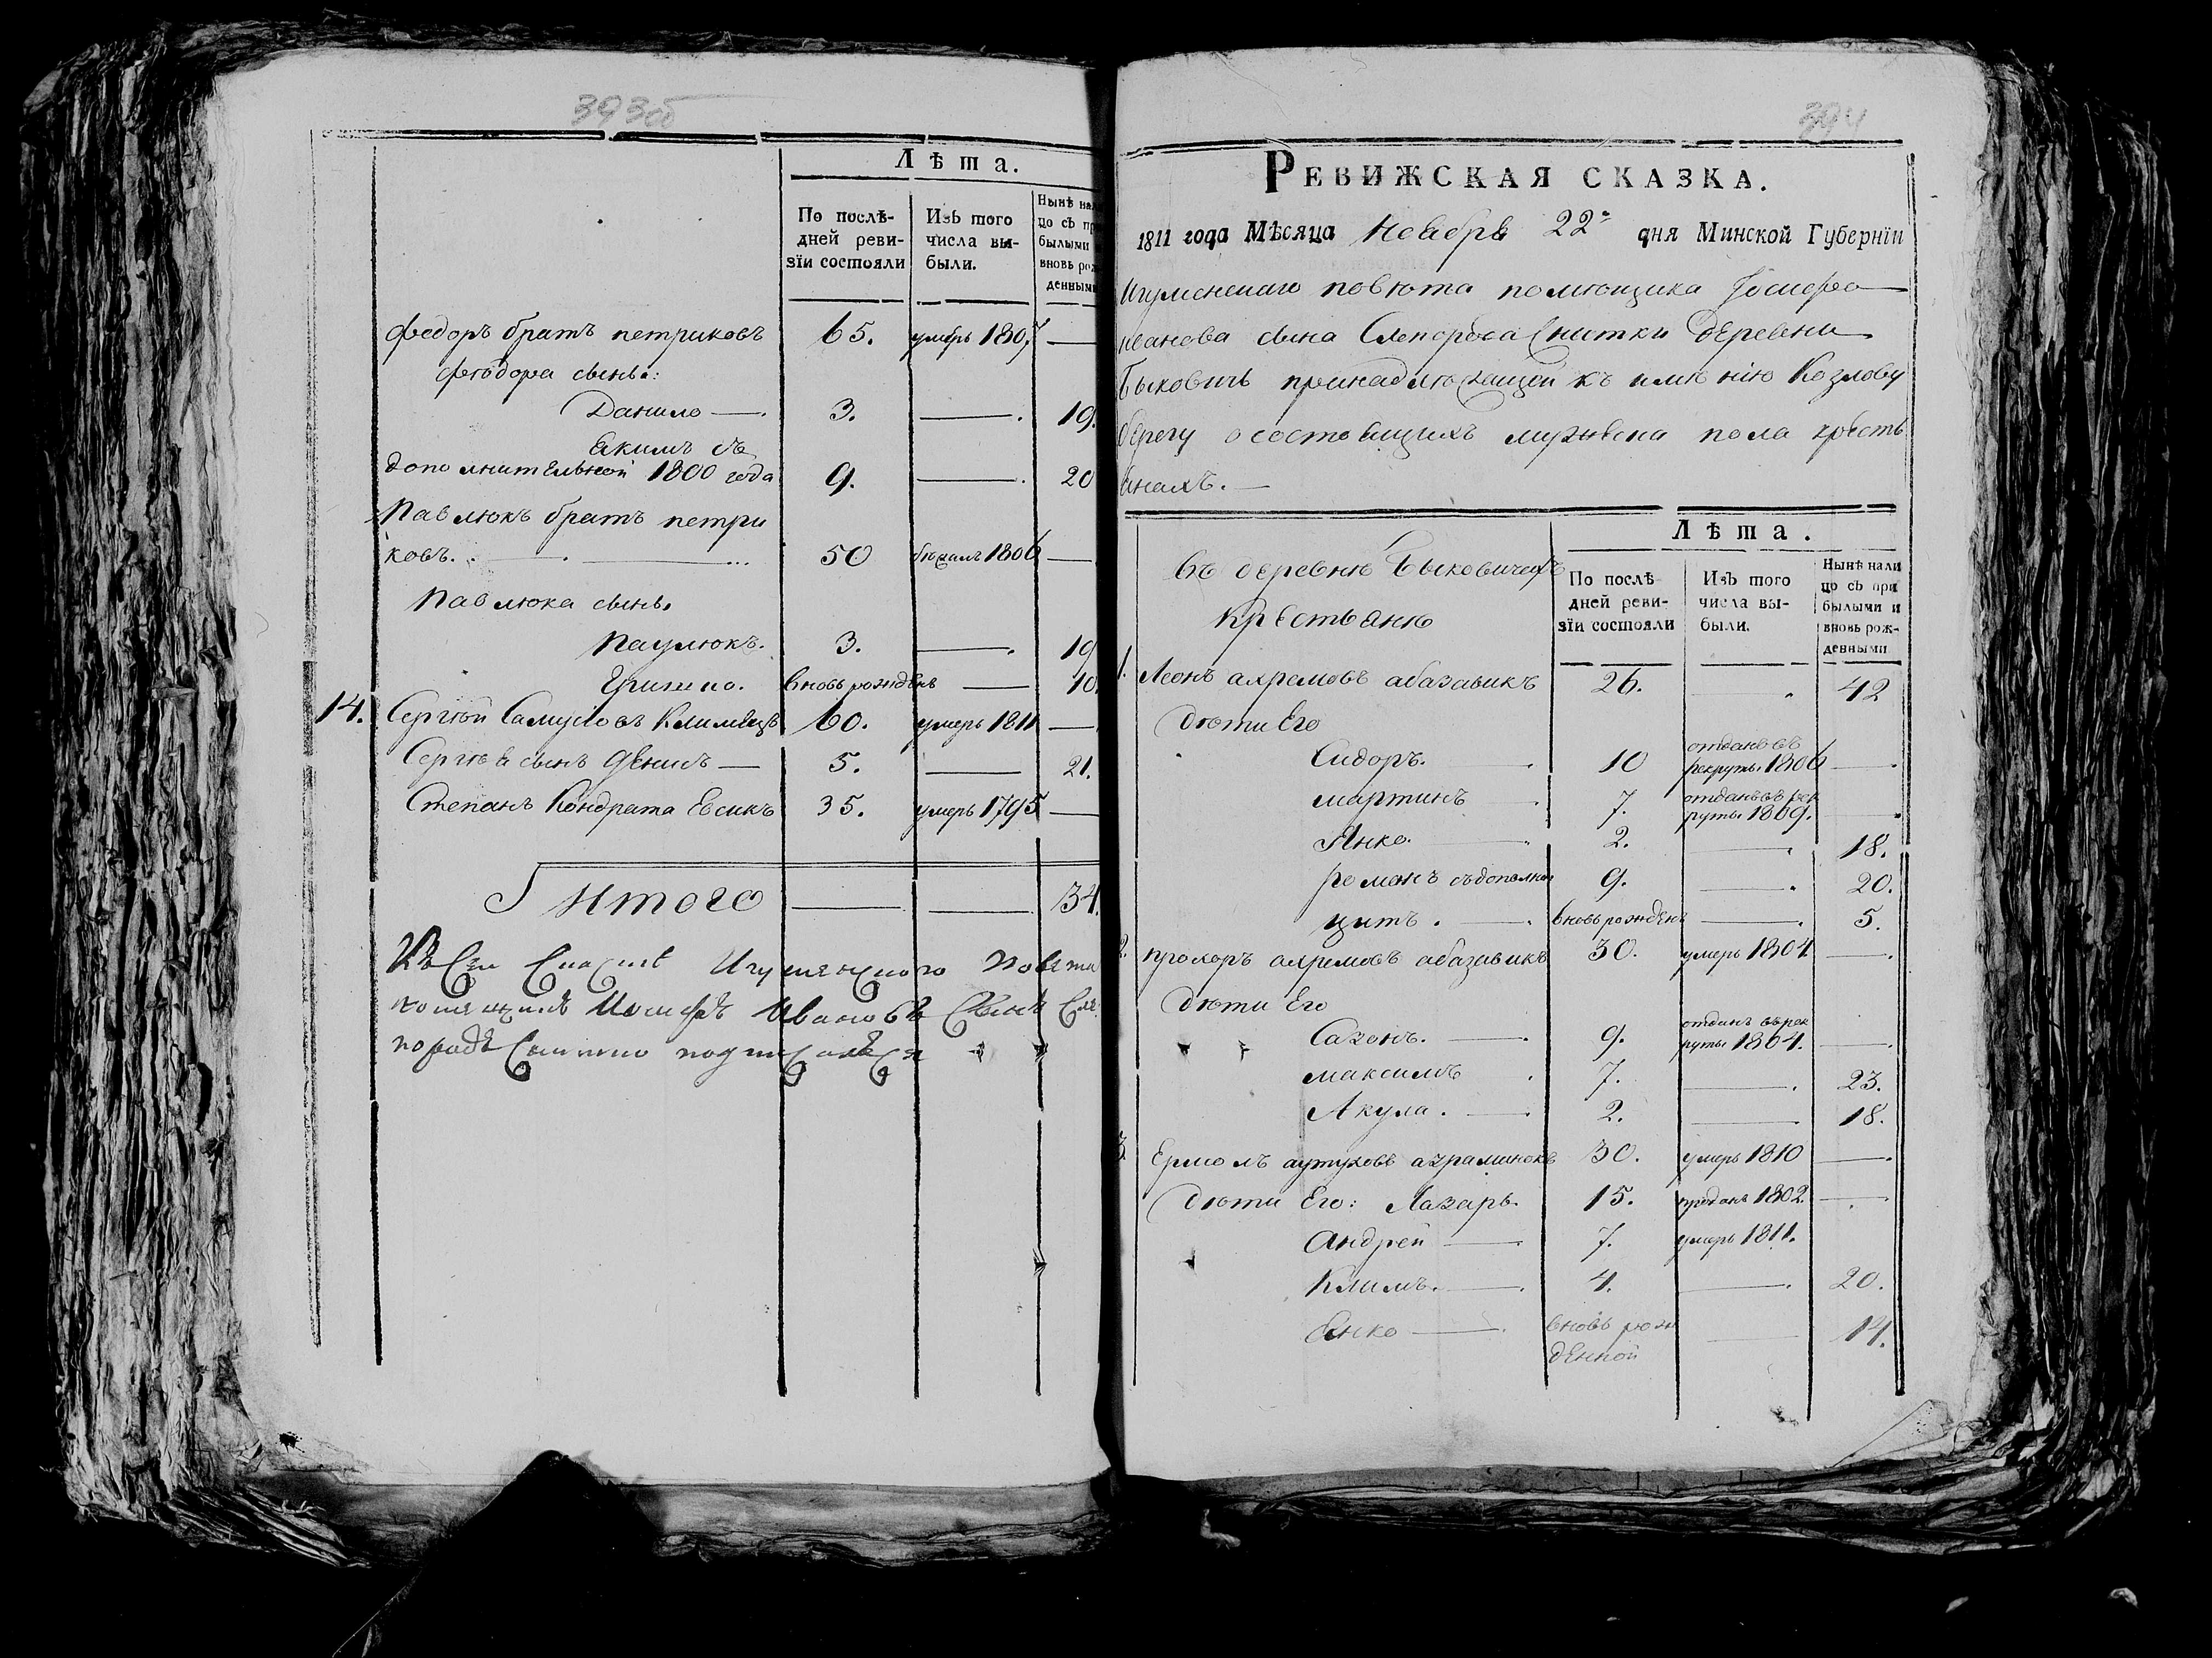 393об
Лѣта.
По послѣ-
дней реви-
зїи состояли
Изъ того
числа вы-
были.
Нынѣ нали
цо съ при
былыми
вновь рож
денными
Федоръ братъ петриковъ 65. умеръ 1807 —
Феодора сынъ:
Данило — 3. — 19.
Екимъ съ
дополнительной 1800 года 9. — 20
Павлюкъ братъ петри
ковъ. — 50 бежалъ 1806 —
Павлюка сынъ.
Паулюкъ. 3. — 19
Гришко. вновь рожденъ — 10.
14. Сергѣй Самусіовъ Климецъ 60. умеръ 1811 —
Сергѣя сынъ Денисъ — 5. — 21.
Степанъ Кондрата Евсикъ 35. умеръ 1795 —
Итого — — 34.
Къ Сей Скаскѣ Игуменского Повета
помещикъ Иосифъ Ивановъ Сынъ
подписался
394
Ревижская сказка.
1811 года Мѣсяца Ноября 22 дня Минской Губернїи
Игуменскаго повѣта помѣщика Іосифа
иванова сына Снитки деревни
Быковичь принадлѣжащей къ имѣнію Козлову
берегу о состоящихъ мужеска пола кресть
янахъ. —
Лѣта.
въ деревнѣ Быковичахъ
крестьянѣ
По послѣ-
дней реви-
зїи состояли
Изъ того
числа вы-
были.
Нынѣ нали
цо съ при
былыми и
вновь рож-
денными
1. Леонъ ахремовъ абазавикъ 26. — 42
Дѣти Его
Сидоръ. — 10 отданъ въ рекруты 1806 —
мартинъ 7. отданъ въ рек руты 1809. —
Янко. — 2. — 18.
романъ съ дополни 9. — 20.
цитъ. — вновь рожденъ — 5.
2. прохоръ ахремовъ абазавикъ 30. умеръ 1804 —
Дѣти Его
Сазонъ. — 9. отданъ въ рек руты 1804. —
максимъ 7. — 23.
Акула. — 2. — 18.
3. Ермолъ аутуховъ ахраминокъ 30. умеръ 1810 —
Дѣти Его: Лазаръ 15. проданъ 1802. —
Андрей — 7. умеръ 1811.
Климъ. — 4. — 20.
Янко — вновь рож
денной — 14.